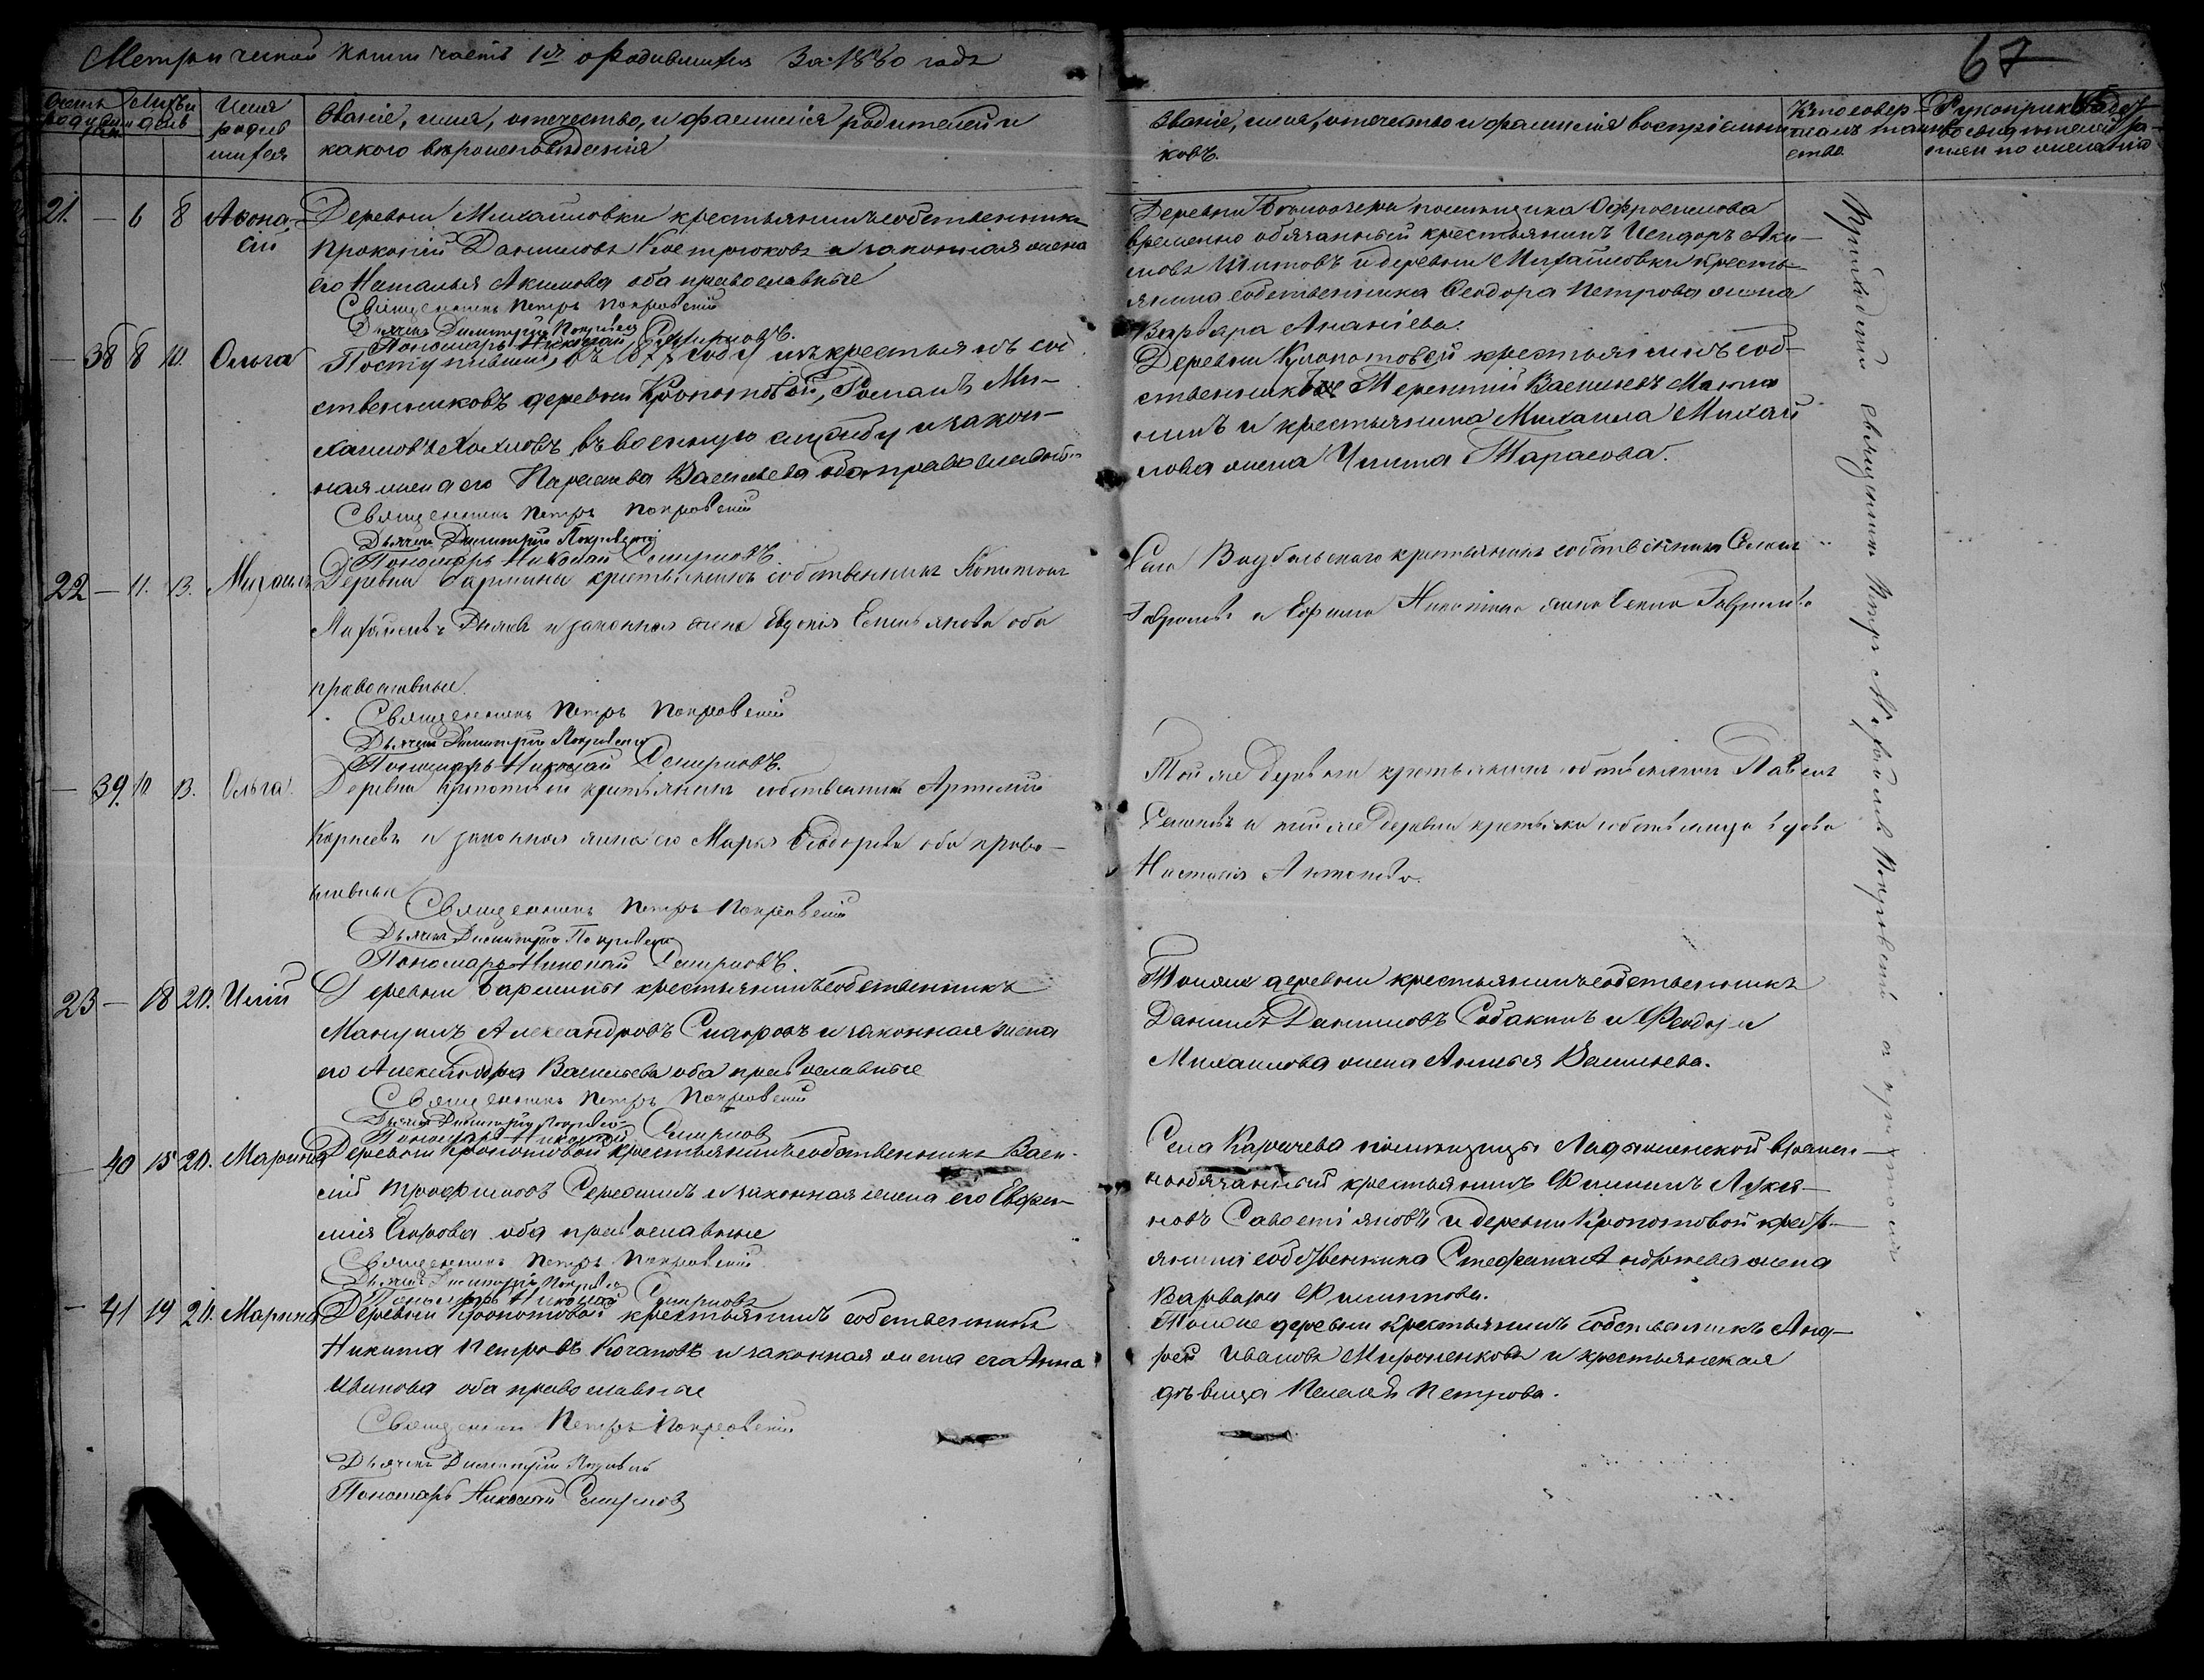 Метрической книги часть 1я о родившихся За 1880 годъ
67
Счетъ родившихся
Мѣсяцъ и день
Имя родившихся
Званіе, имя, отечество, и фамилія родителей и
какого вѣроисповѣданія
Званіе, имя, отечество и фамилія воспріемни
ковъ.
Кто совер-
шалъ таин
ство.
Рукоприкладст
во свидѣтелей за-
писи по желанію
21. — 6 8 Аѳона-
сій
Деревни Михайловки крестьянинъ собственникъ
Прокопій Даниловъ Кострюковъ и законная жена
его Наталья Акимова оба православные
Священникъ Петръ Покровскій
Дьячекъ Димитрій Покровскій
Пономарь Николай Смирновъ.
Деревни помещика Офросимова
временно обязанный крестьянинъ Исидоръ Аки-
мовъ Титовъ и деревни Михайловки кресть-
янина собственника Ѳеодора Петрова жена
Варвара Ананіева.
— 38 8 10. Ольга
Поступившій, въ году изъ крестьянъ соб
ственниковъ деревни Кропотовой, Романъ Ми-
хаиловъ Хохловъ, въ военную службу и закон-
ная жена его Параскева Васильева оба православн.
Священникъ Петръ Покровскій
Дьячекъ Димитрій Покровскій
Пономарь Николай Смирновъ.
Деревни Кропотовой крестьянинъ соб-
ственникъ Терентій Васильевъ
и крестьянина Михаила Михаи
лова жена Тарасова.
22 — 11. 13. Михаилъ
Деревни Бармина крестьянинъ собственникъ Капитонъ
Михайловъ и законная жена Евдокія Емельянова оба
православные.
Священникъ Петръ Покровскій
Дьячекъ Димитрій Покровскій
Пономарь Николай Смирновъ.
Села крестьянинъ собственникъ
Гавриловъ и Ефима Никитина жена Гаврилова
— 39. 10 13. Ольга.
Деревни Кропотовой крестьянинъ собственникъ Артемій
Карнеевъ и законная жена его Марья Ѳеодорова оба право-
славные
Священникъ Петръ Покровскій
Дьячекъ Димитрій Покровскій
Пономарь Николай Смирновъ.
Той же деревни крестьянинъ собственникъ Павелъ
и той же деревни крестьянка собственница вдова
Настасія Антонова.
23 — 18 20. Илій
Деревни Бармины крестьянинъ собственникъ
Мануилъ Александровъ и законная жена
его Александра Васильева оба православные
Священникъ Петръ Покровскій
Дьячекъ Димитрій Покровскій
Пономарь Николай Смирновъ
Тойже деревни крестьянинъ собственникъ
Даніилъ Даниловъ Собакинъ и Ѳеодора
Михаилова жена Васильева.
— 40 15 20. Марина
Деревни Кропотовой крестьянинъ собственникъ Васи-
лій Трофимовъ и законная жена его Евфи-
мія Егорова оба православные
Священникъ Петръ Покровскій
Дьячекъ Димитрій Покровскій
Пономарь Николай Смирновъ
Села Карачева помещицы Ладыженской времен-
нообязанный крестьянинъ Филиппъ Лукья-
новъ и деревни Кропотовой кресть-
янина собственника Стефана жена
Варвара Филиппова.
— 41 19 20. Марина
Деревни Кропотовой крестьянинъ собственникъ
Никита Петровъ Кочановъ и законная жена его Анна
Иванова оба православные
Священникъ Петръ Покровскій
Дьячекъ Димитрій Покровскій
Пономарь Николай Смирновъ
Тойже деревни крестьянинъ собственникъ Анд-
рей Ивановъ Мироненковъ и крестьянская
дѣвица Пелагія Петрова.
Приходскій священникъ Петръ Михайловъ Покровскій